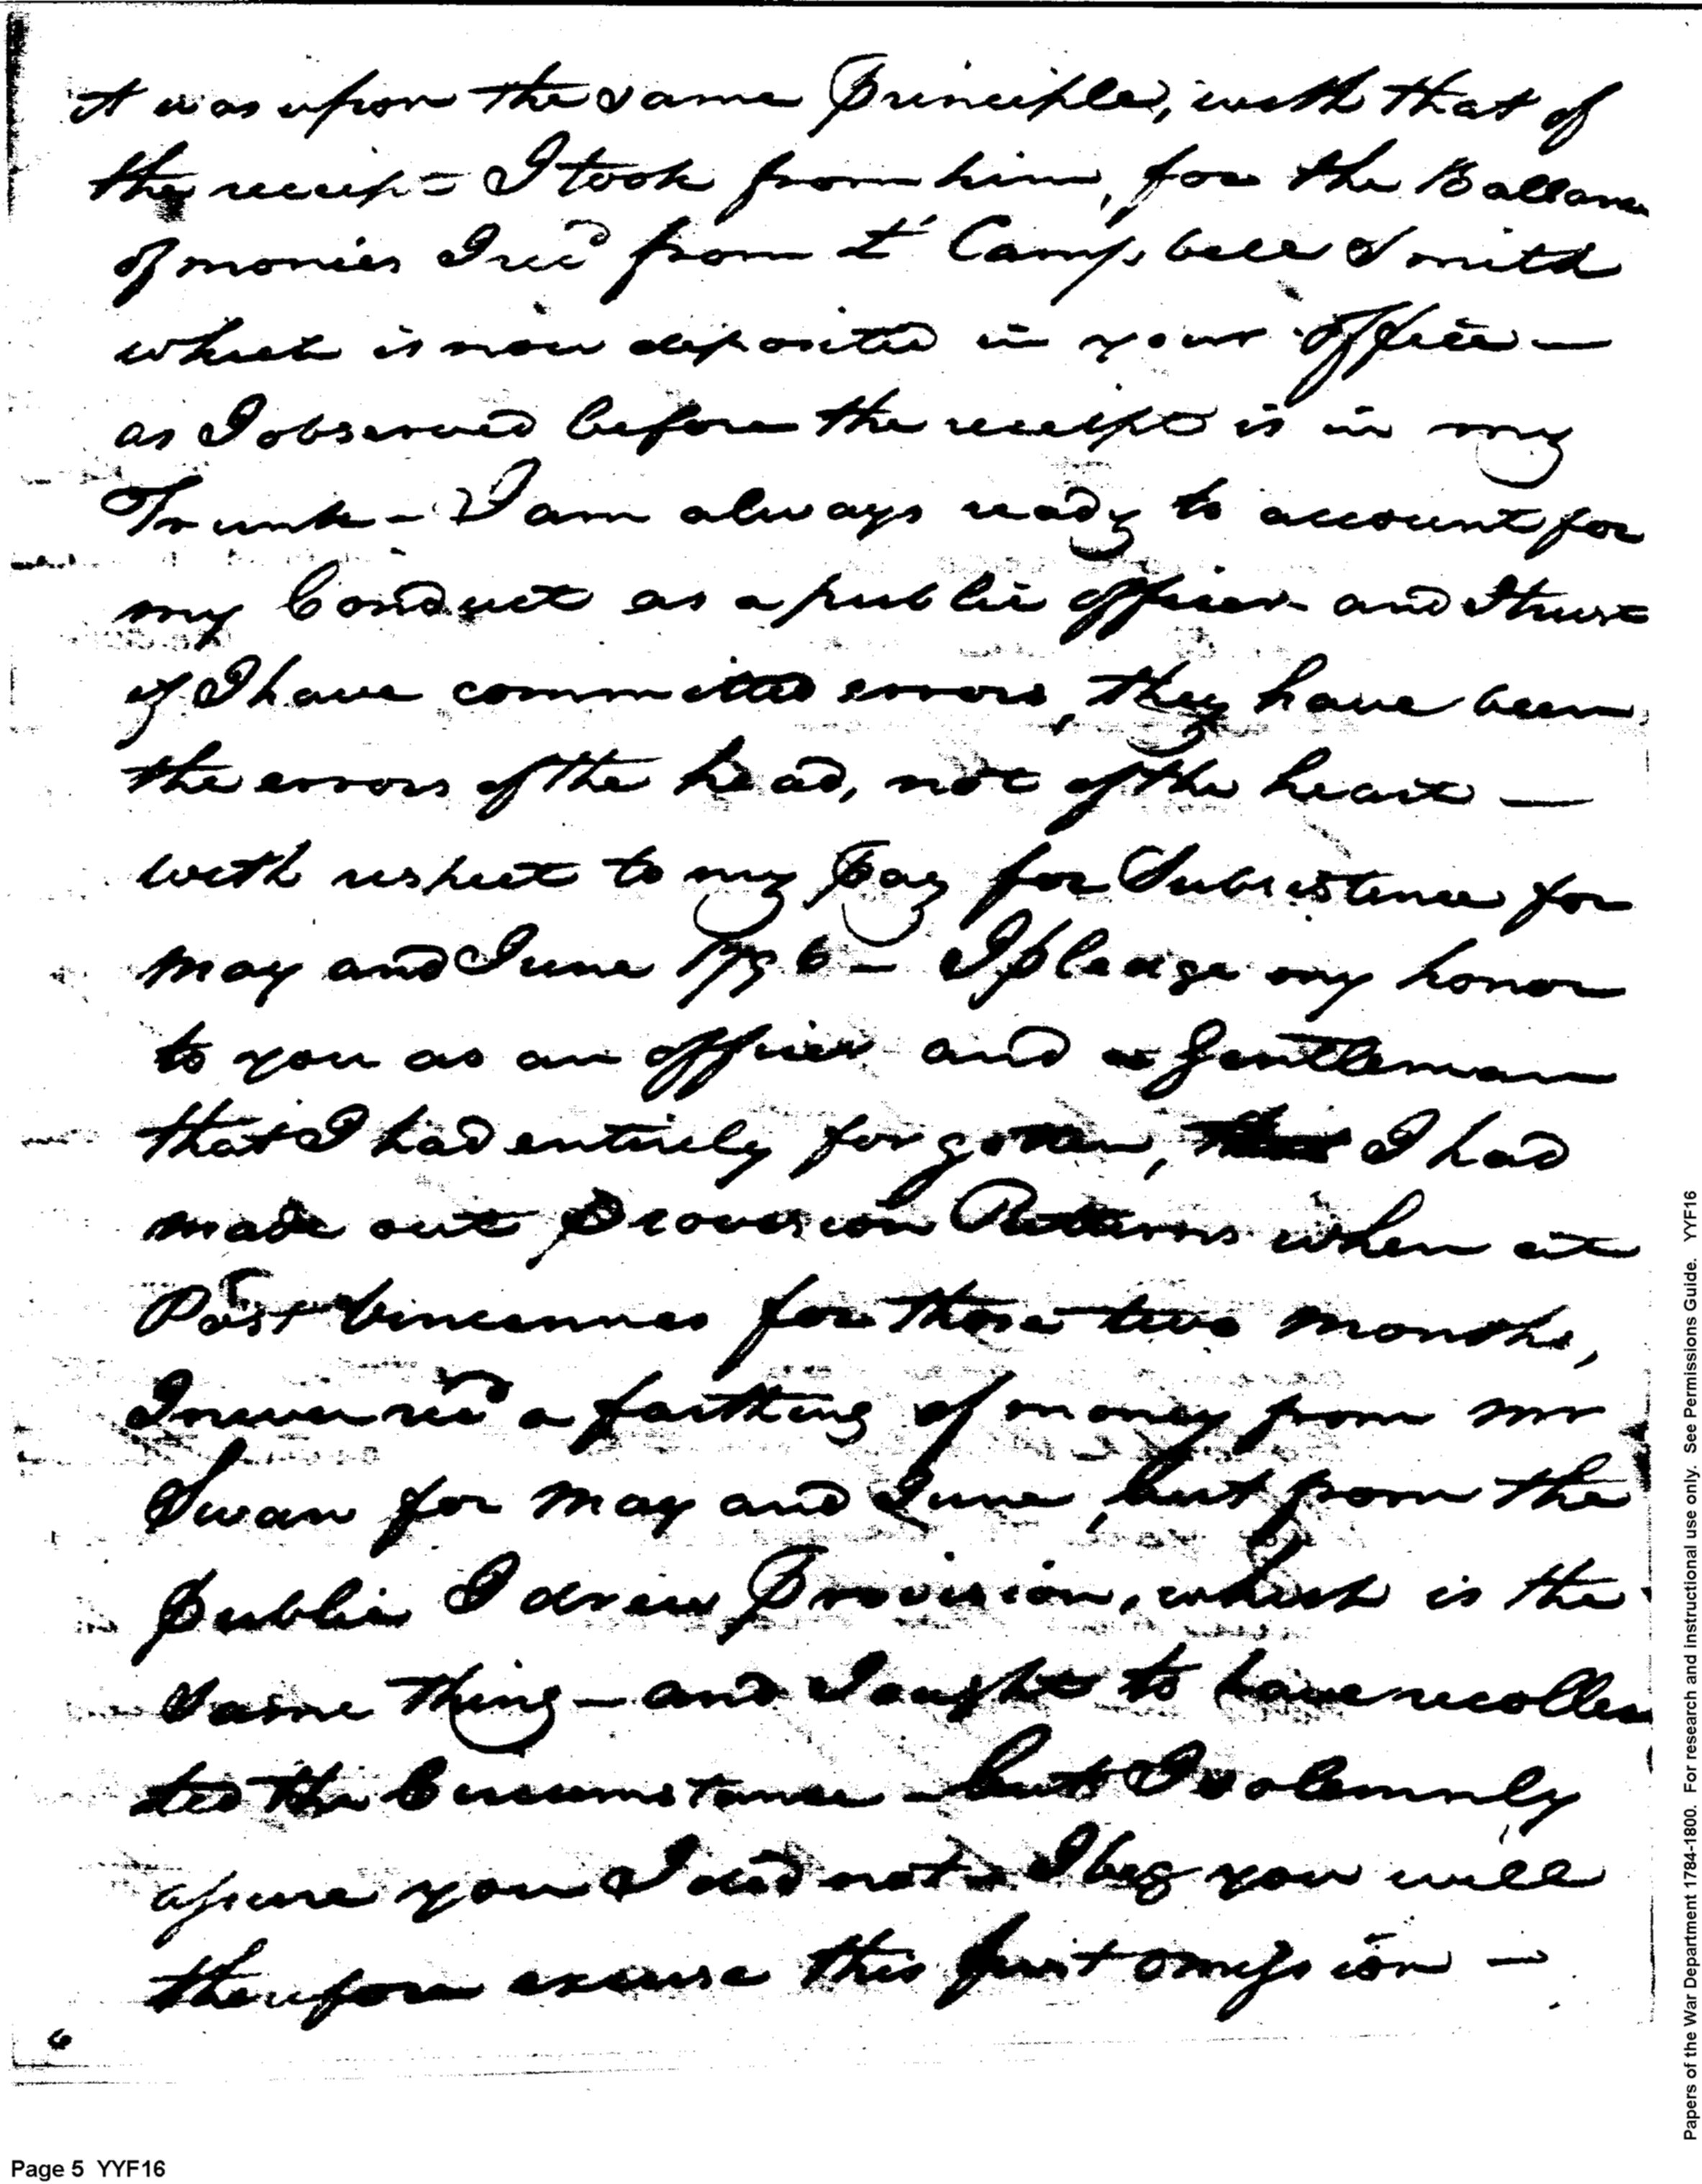 it was upon the same Principle, with that of
the receipt I took from him, for the Ballance
of monies I recd from Lt Campbell Smith
which is now deposited in your office —
as I observed before the receipt is in my
Trunk – I am always ready to account for
my Conduct as a public officer and I trust
if I have committed errors, they have been
the errors of the head, not of the heart —
with respect to my Pay for Subsistence for
May and June 1796 – I pledge my honor
to you as an officer and a Gentleman
that I had entirely forgotten, I had
made out Provision Returns when at
Post Vincennes for those two months,
I never recd a farthing of money from Mr
Swan for May and June, but from the
Public I drew Provision, which is the
same thing – and I ought to have recollec
ted the Circumstance – but I solemnly
assure you I did not – I beg you will
therefore excuse this first omission –
6
Page 5 YYF16
Papers of the War Department 1784-1800. For research and Instructional use only. See Permissions Guide. YYF16